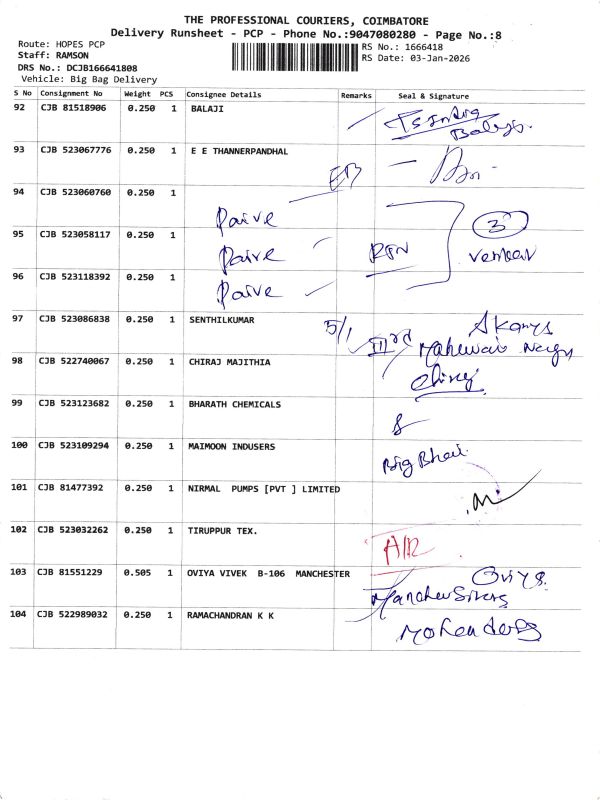 THE PROFESSIONAL COURIERS, COIMBATORE
Delivery Runsheet - PCP - Phone No.:9047080280 - Page No.:8
Route: HOPES PCP
RS No.: 1666418
Staff: RAMSON
RS Date: 03-Jan-2026
DRS No.: DCJB166641808
Vehicle: Big Bag Delivery
S No Consignment No Weight PCS Consignee Details Remarks Seal & Signature
92 CJB 81518906 0.250 1 BALAJI
93 CJB 523067776 0.250 1 E E THANNERPANDHAL EB
94 CJB 523060760 0.250 1 Paive
95 CJB 523058117 0.250 1 Paive RSN 3
96 CJB 523118392 0.250 1 Paive
97 CJB 523086838 0.250 1 SENTHILKUMAR 5/1 III rd
98 CJB 522740067 0.250 1 CHIRAJ MAJITHIA
99 CJB 523123682 0.250 1 BHARATH CHEMICALS
100 CJB 523109294 0.250 1 MAIMOON INDUSERS Big Bhai
101 CJB 81477392 0.250 1 NIRMAL PUMPS [PVT ] LIMITED
102 CJB 523032262 0.250 1 TIRUPPUR TEX.
103 CJB 81551229 0.505 1 OVIYA VIVEK B-106 MANCHESTER Oviya
104 CJB 522989032 0.250 1 RAMACHANDRAN K K